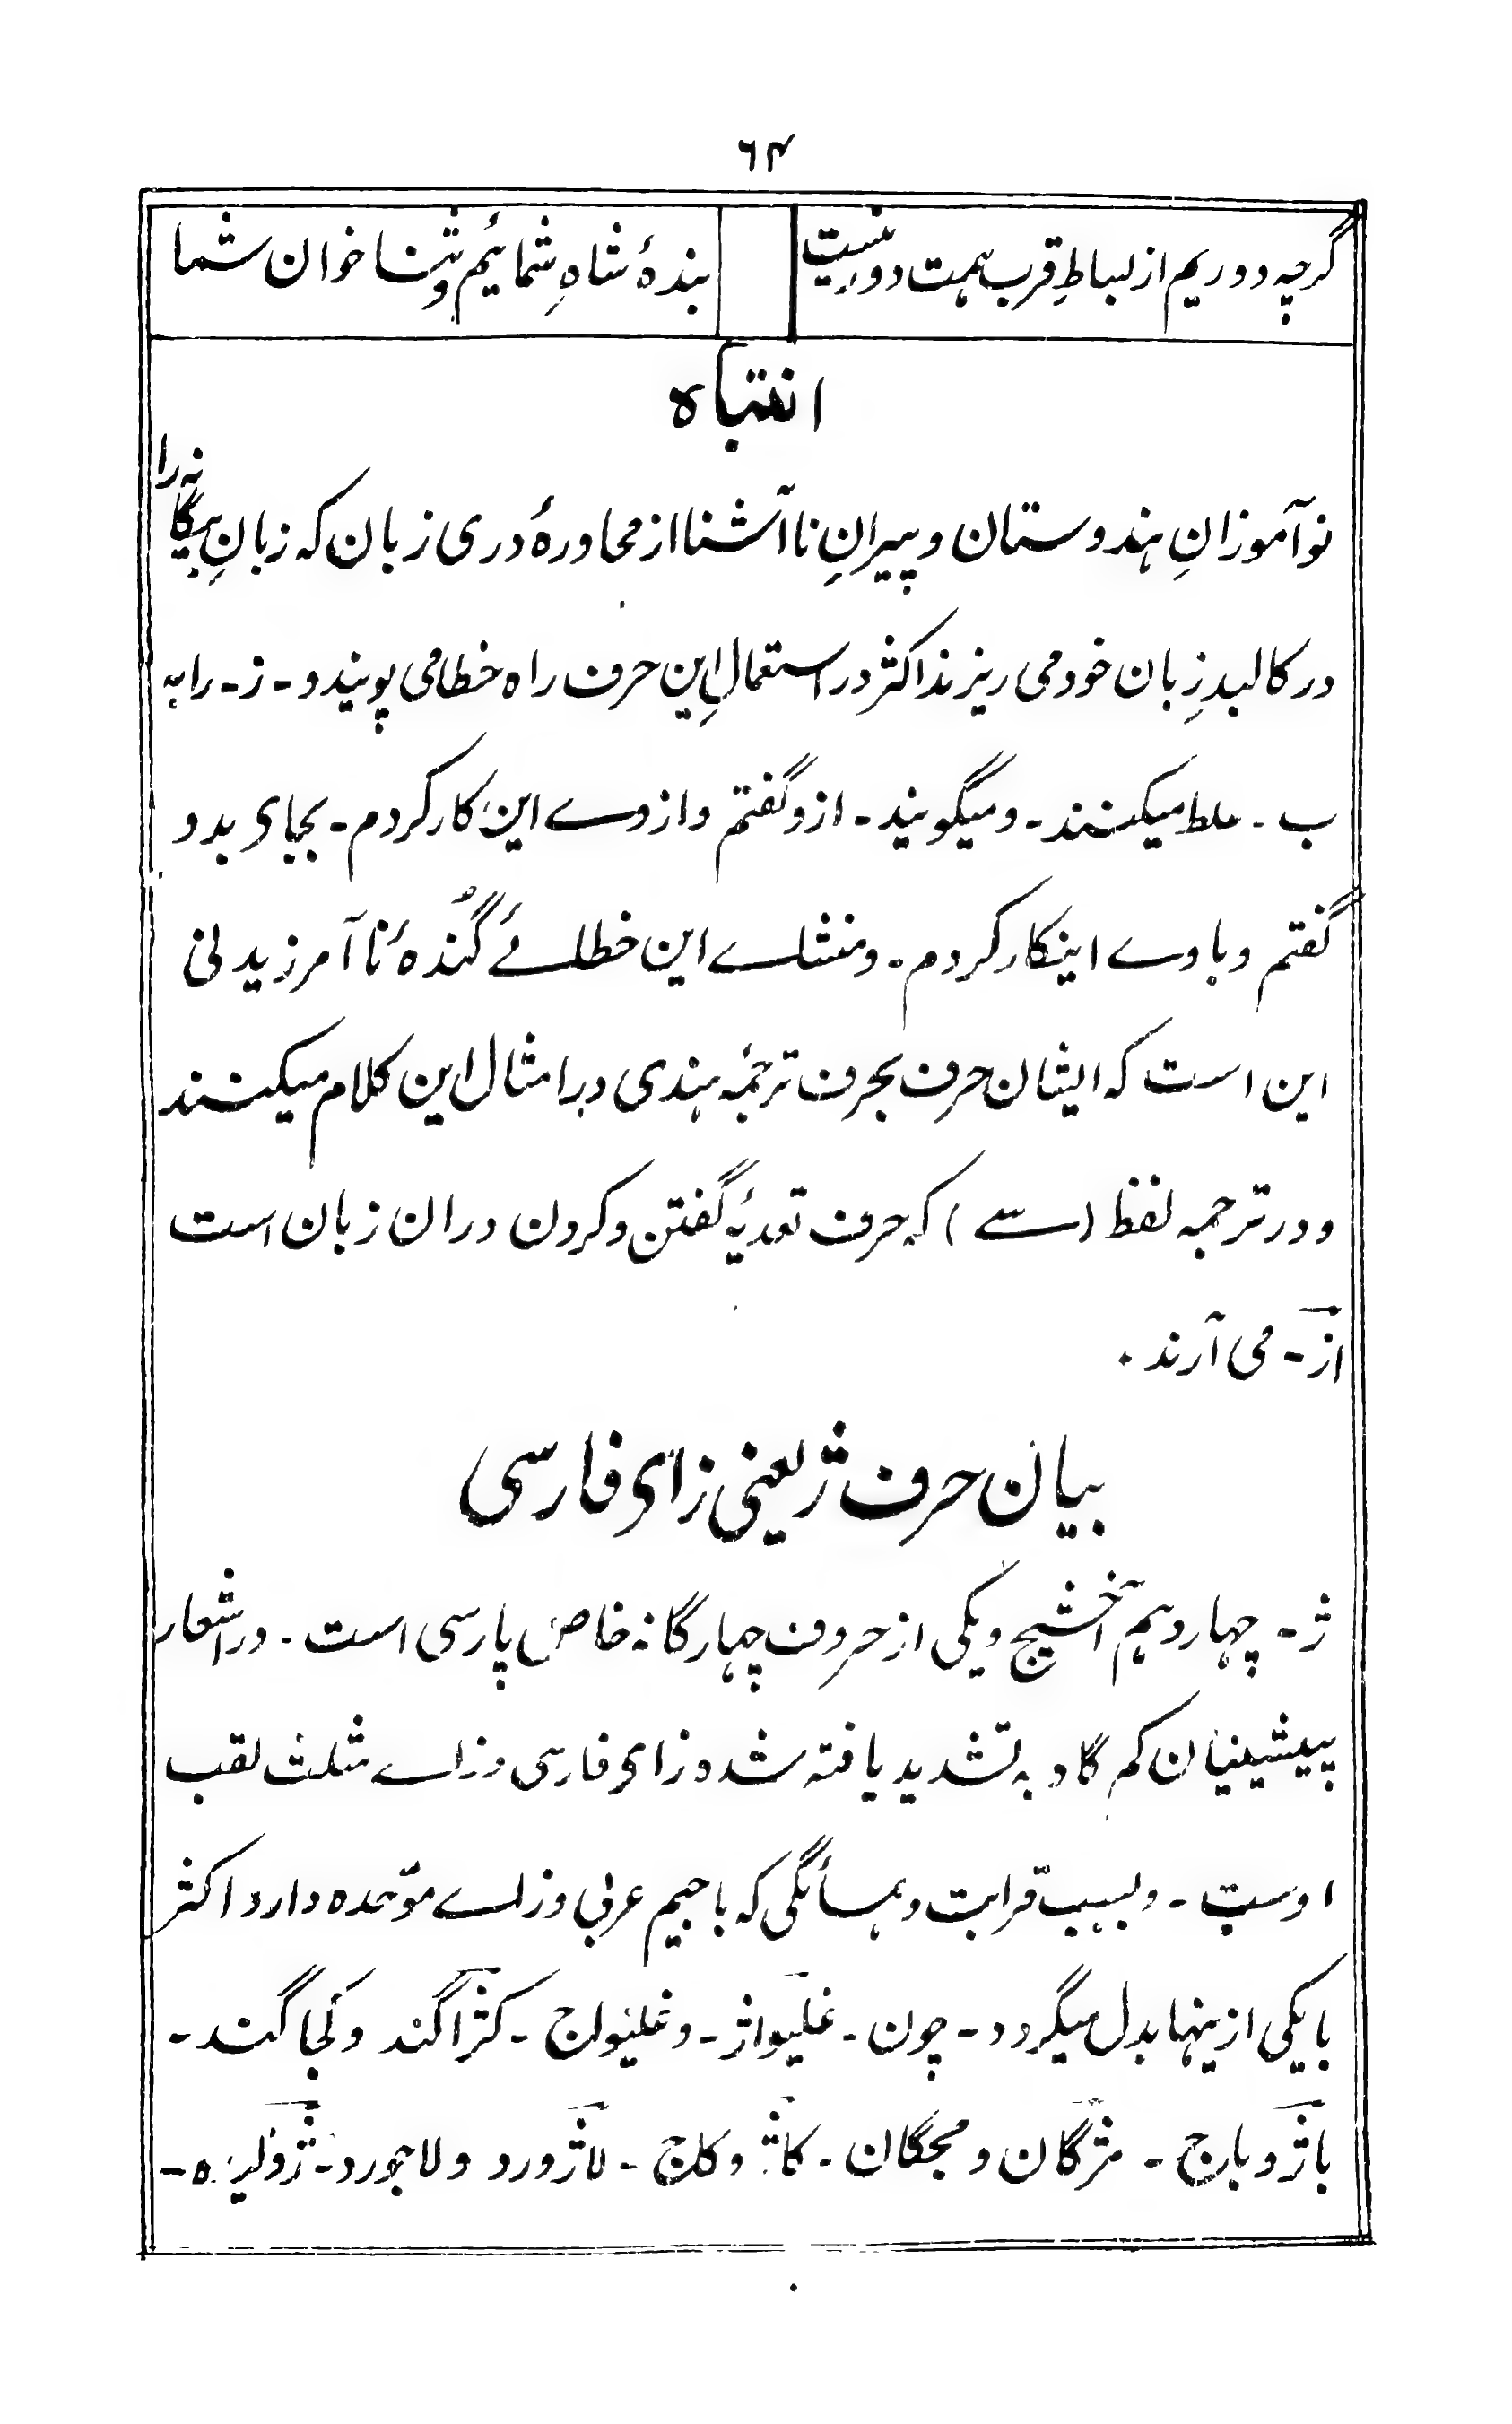 ۶۴
گرچه دوریم از بساطِ قرب همت دور نیست
بندهٔ شاهِ شمائیم و ثنا خوان شما
انتباه
نوآموزانِ هندوستان و پیرانِ ناآشنا از محاورهٔ دری زبان که زبانِ بیگانه را
در کالبدِ زبان خود می ریزند اکثر در استعمالِ این حرف راه خطا می پویند و - ز - را به
ب - غلط میکنند - و میگویند - ازو گفتم و از وے این کار کردم - بجای بدو
گفتم و با وے اینکار کردم - و منشاے این خطائے گُندهٔ نا آمرزیدنی
این است که ایشان حرف بحرف ترجمهٔ هندی در امثال این کلام میکنند
و در ترجمه لفظ (سے) که حرف تعدیهٔ گفتن و کردن دران زبان است
از - می آرند ۰
بیان حرف ژ یعنی زای فارسی
ژ - چهاردهم آخشیج و یکی از حروف چهارگانه خاص پارسی است - در اشعار
پیشینیان کم گاه به تشدید یافته شد و زای فارسی و زاے مثلث لقب
اوست - و بسبب قرابت و همسأیگی که با جیم عربی و زاے موّحده دارد اکثر
با یکی ازینها بدل میگردد - چون - غلیواژ - و غلیواج - کژآگند و کجاگند -
باژ و باج - مژگان و مجگان - کاژ و کاج - لاژورد و لاجورد - ژولیده -